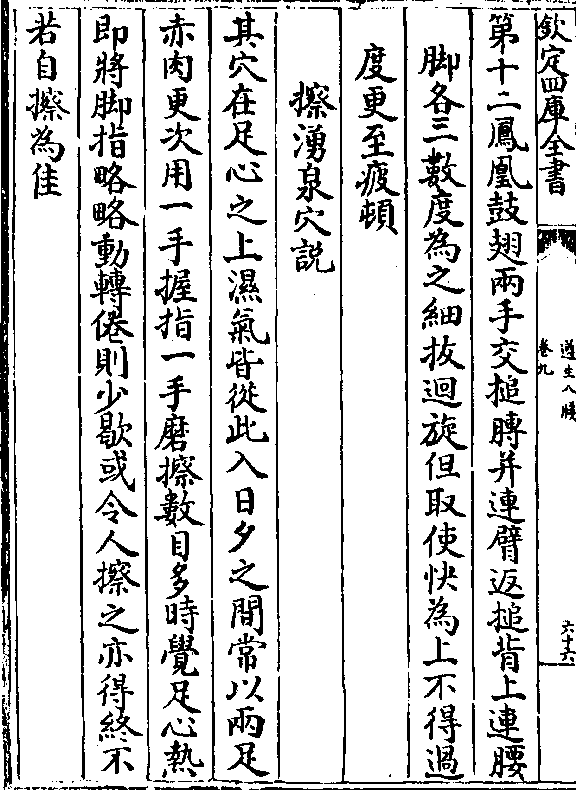 欽定四庫全書
遵生八牋
卷九
六十六
第十二鳳凰鼓翅兩手交搥膊并連臂返搥背上連腰
脚各三數度為之細拔迴旋但取使快為上不得過
度更至疲頓
擦湧泉穴説
其穴在足心之上濕氣皆從此入日夕之間常以兩足
赤肉更次用一手握指一手磨擦數目多時覺足心熱
即將脚指略略動轉倦則少歇或令人擦之亦得終不
若自擦為佳